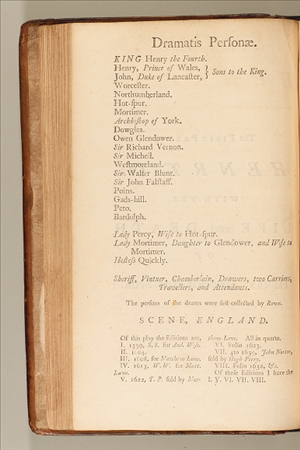 Dramatis Personæ.
KING Henry the Fourth.
Henry, Prince of Wales, } Sons to the King.
John, Duke of Lancaster,
Worcester.
Northumberland.
Hot-spur.
Mortimer.
Archbishop of York.
Dowglas.
Owen Glendower.
Sir Richard Vernon.
Sir Michell.
Westmoreland.
Sir Walter Blunt.
Sir John Falstaff.
Poins.
Gads-hill.
Peto.
Bardolph.
Lady Percy, Wife to Hot-spur.
Lady Mortimer, Daughter to Glendower, and Wife to
Mortimer.
Hostess Quickly.
Sheriff, Vintner, Chamberlain, Drawers, two Carriers,
Travellers, and Attendants.
The persons of the drama were first collected by Rowe.
SCENE, ENGLAND.
Of this play the Editions are,
I. 1599, S. S. for And. Wise.
II. 1604.
III. 1608, for Matthew Law.
IV. 1613, W. W. for Matt.
Law.
V. 1622, T. P. sold by Mat-
thew Law. All in quarto.
VI. Folio 1623.
VII. 4to 1639, John Norton,
sold by Hugh Perry.
VIII. Folio 1632, &c.
Of these Editions I have the
I. V. VI. VII. VIII.